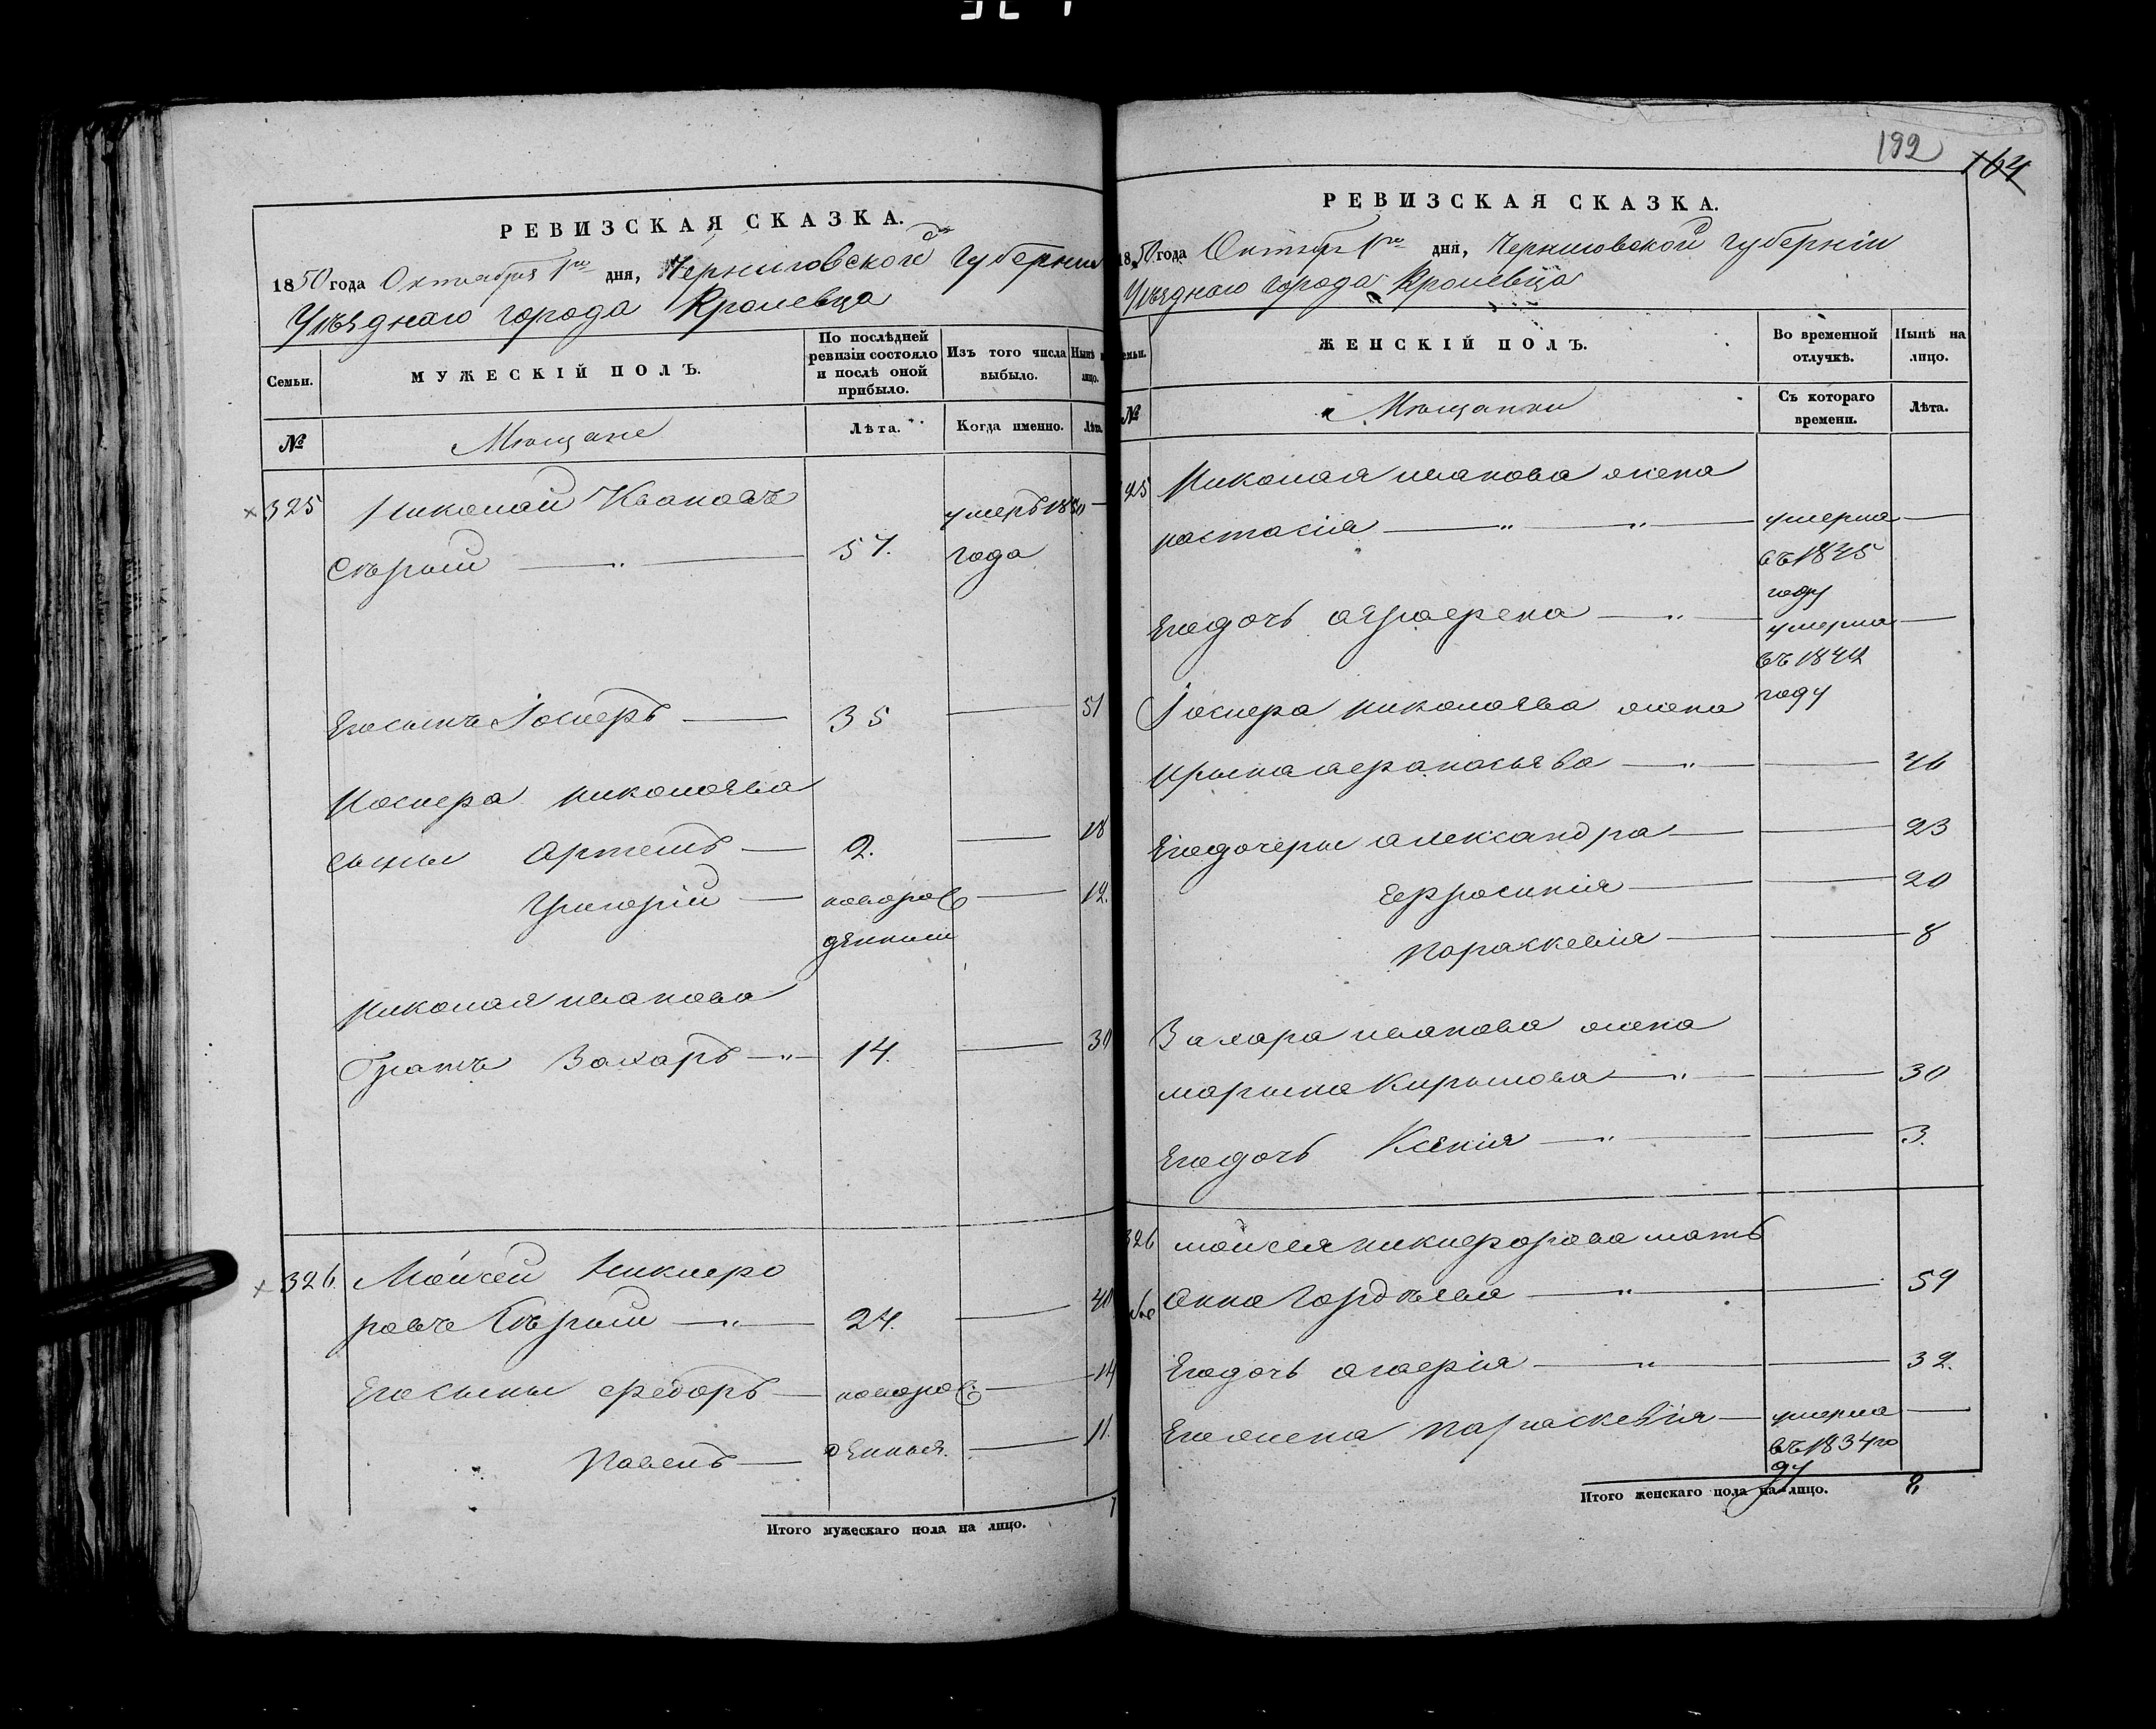 192
164
РЕВИЗСКАЯ СКАЗКА.
1850 года Октября 1го дня, Черниговской Губерніи
Уѣзднаго города Кролевца
Семьи.
МУЖЕСКІЙ ПОЛЪ.
По послѣдней ревизіи состояло и послѣ оной прибыло.
Изъ того числа выбыло.
Нынѣ лицо.
№
Мѣщане
Лѣта.
Когда именно.
Лѣта.
325 Николай Ивановъ умеръ 1830
Сѣрый 57. года
Его сынъ Іосифъ 35 51
Иосифа николаева
сыны Артемъ 2. 18
Григорій новоро 12.
жденный
Николая иванова
Братъ Захаръ 14. 30
326. Мойсей Никифо
ровъ Сѣрый 24. 40
Его сыны Федоръ новоро 14
Павелъ жденныя. 11.
Итого мужескаго пола на лицо. 7
РЕВИЗСКАЯ СКАЗКА.
1850 года Октября 1го дня, Черниговской губерніи
Уѣзднаго города Кролевца
семьи.
ЖЕНСКІЙ ПОЛЪ.
Во временной отлучкѣ.
Нынѣ на лицо.
№
Мѣщанки
Съ котораго времени.
Лѣта.
325 Николая иванова жена
настасія умерла
въ 1845
году
Его дочь аграфена умерла
въ 1844
году
Іосифа николаева жена
Ирына афанасьева 46
Его дочеры александра 23
Ефросинія 20
Параскевія 8
Захара иванова жена
марына Кирылова 30
Его дочь Ксенія 3.
326 мойсея никифорова мать
Анна Гордѣева 59
Его дочь агафія 32.
Его жена параскевія умерла
въ 1834 го
ду
Итого женскаго пола на-лицо. 8,